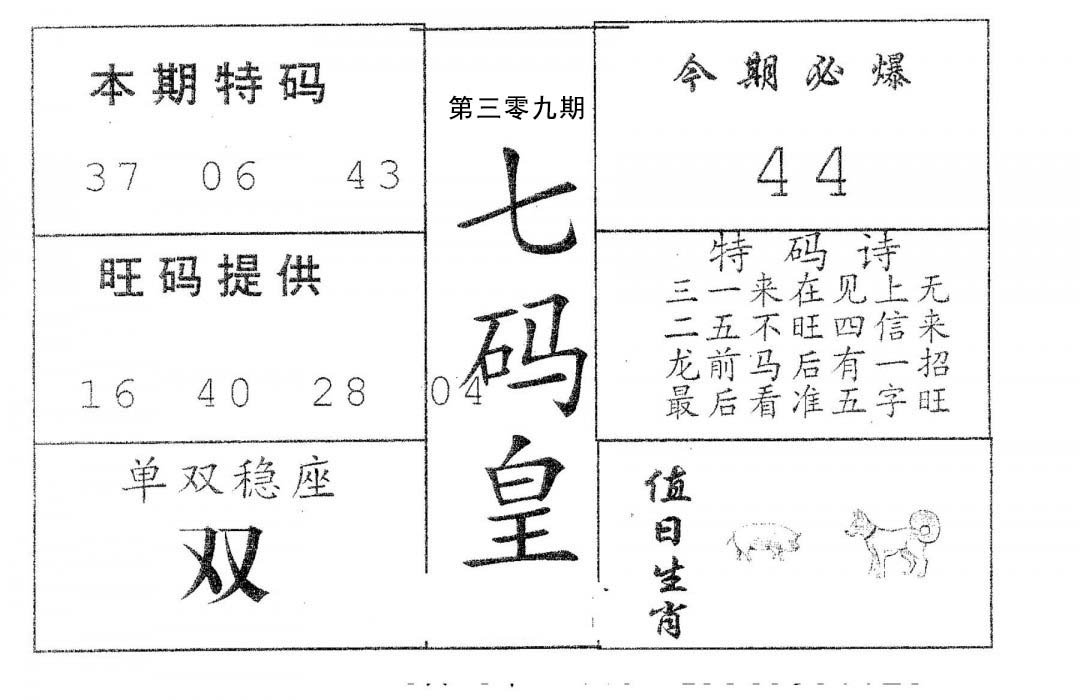 本期特码
37 06 43
旺码提供
16 40 28 04
单双稳座
双
第三零九期
七码皇
今期必爆
44
特码诗
三一来在见上无
二五不旺四信来
龙前马后有一招
最后看准五字旺
值日生肖